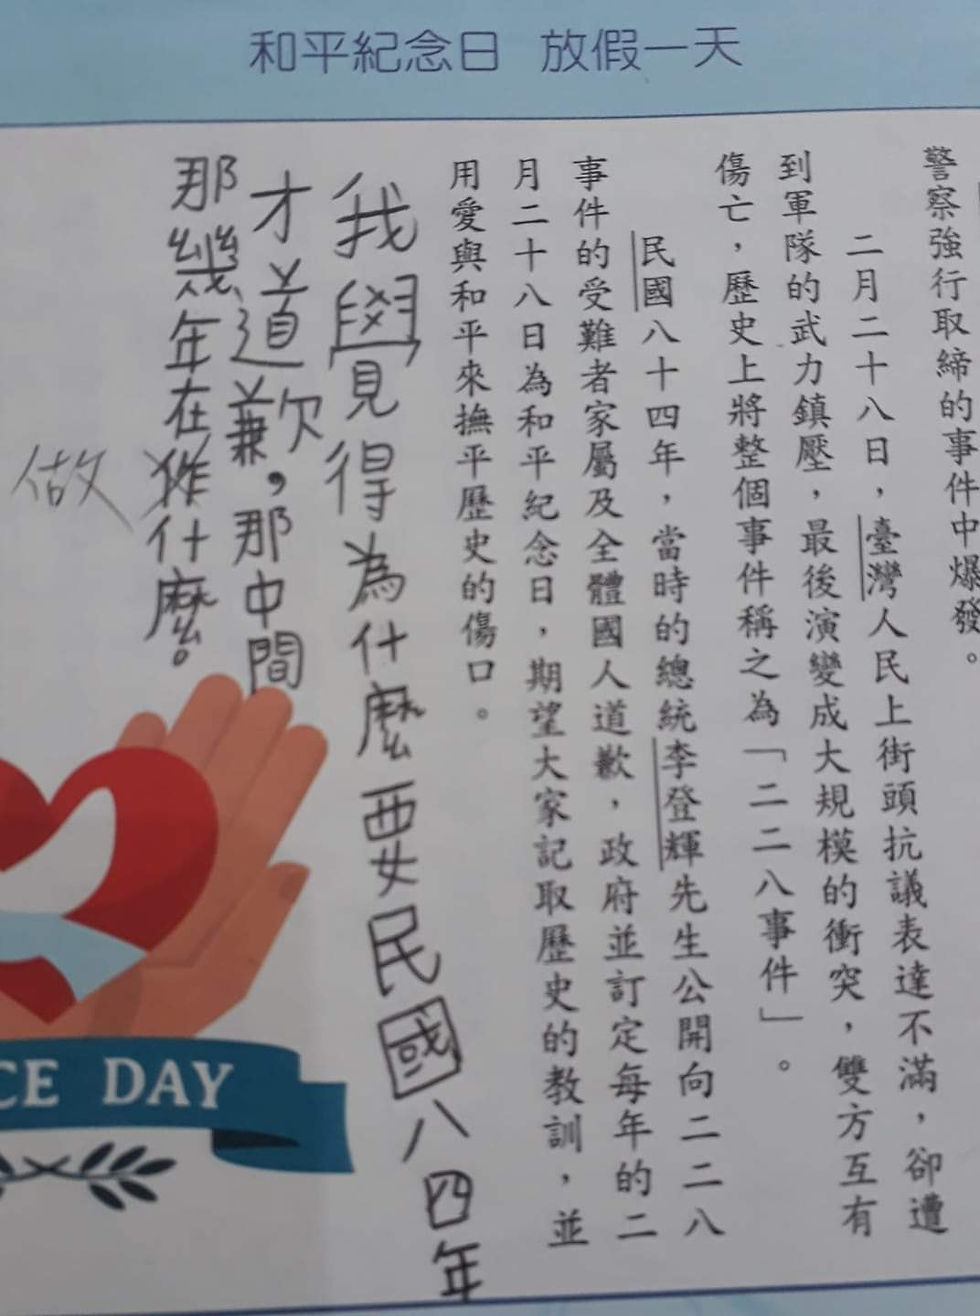 和平紀念日 放假一天
警察強行取締的事件中爆發。
二月二十八日，臺灣人民上街頭抗議表達不滿，卻遭
到軍隊的武力鎮壓，最後演變成大規模的衝突，雙方互有
傷亡，歷史上將整個事件稱之為「二二八事件」。
民國八十四年，當時的總統李登輝先生公開向二二八
事件的受難者家屬及全體國人道歉，政府並訂定每年的二
月二十八日為和平紀念日，期望大家記取歷史的教訓，並
用愛與和平來撫平歷史的傷口。
我覺得為什麼要民國八四年
才道歉，那中間
那幾年在做什麼。
做
CE DAY